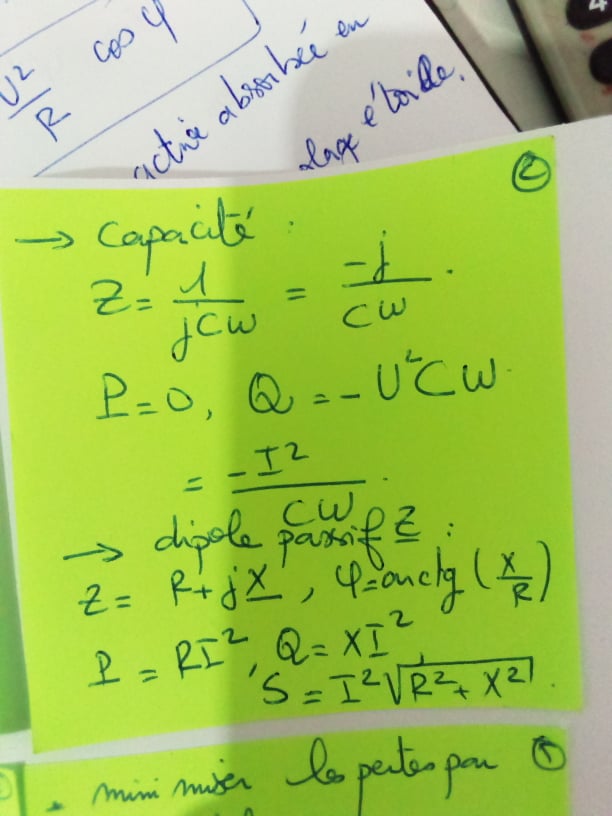 U²/R cos φ
active absorbée en
étoile.
②
→ Capacité :
Z = 1/jCω = -j/Cω.
P = 0, Q = - U²Cω.
= -I²/Cω.
→ dipole passif Z :
Z = R + jX, φ = arctg (X/R)
P = RI², Q = XI²
S = I²√(R² + X²).
①
• minimiser les pertes par